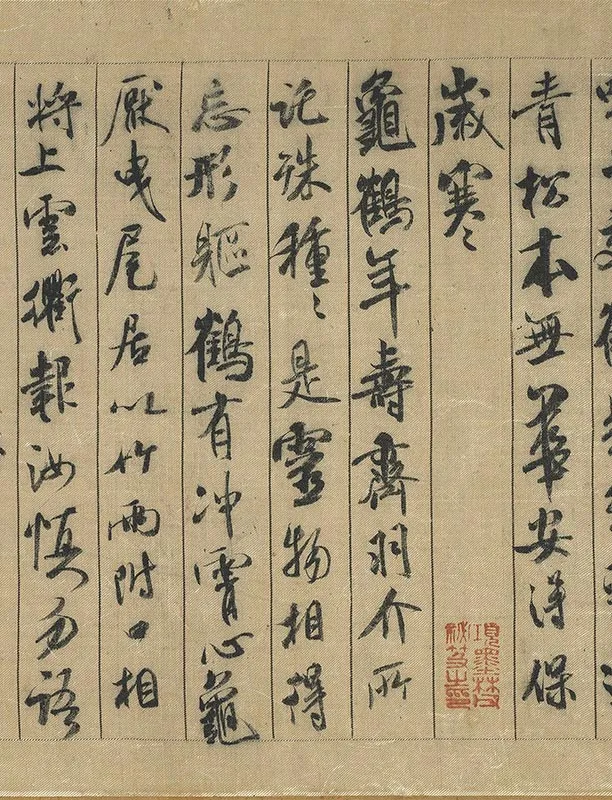 青松本無華安得保
歲寒〻
龜鶴年壽齊羽介所
託殊種〻是靈物相得
忘形軀鶴有冲霄心龜
厭曳尾居以竹兩附口相
將上雲衢報汝慎勿語
項墨林父
秘笈之印